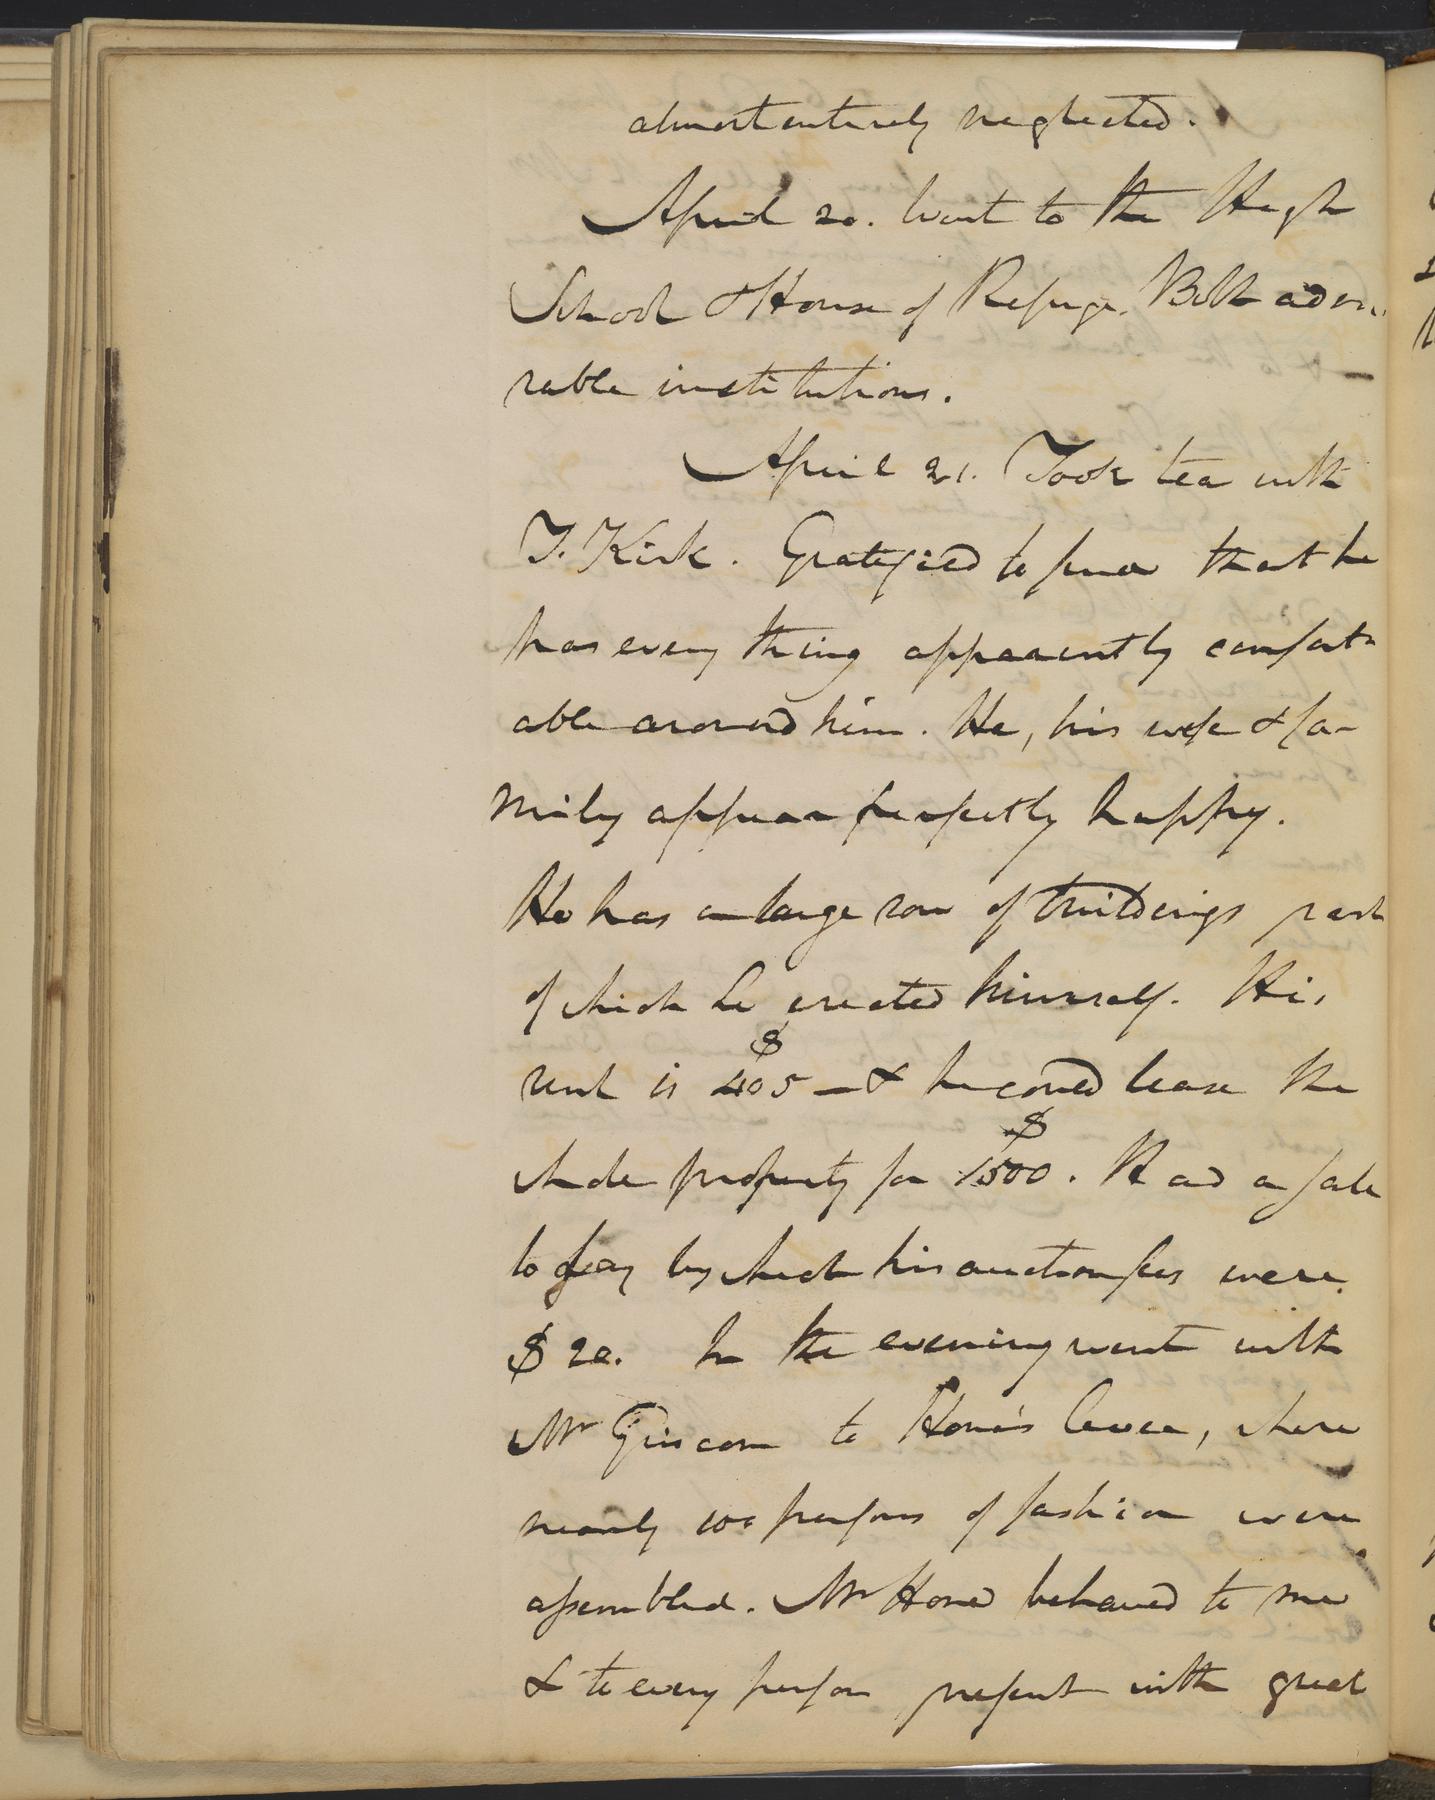 almost entirely neglected.
April 20. Went to the High
School & House of Refuge. Both admi
rable institutions.
April 21. Took tea with
T. Kirk. Gratified to know that he
has every thing apparently comfort-
able around him. He, his wife & fa-
mily appear perfectly happy.
He has a large row of buildings part
of which he erected himself. His
rent is $405 — & he could lease the
whole property for $1500. Had a sale
to day by which his auction fees were
$20. In the evening went with
Mr Griscom to Hone's levee, where
nearly 100 persons of fashion were
assembled. Mr Hone behaved to me
& to every person present with great